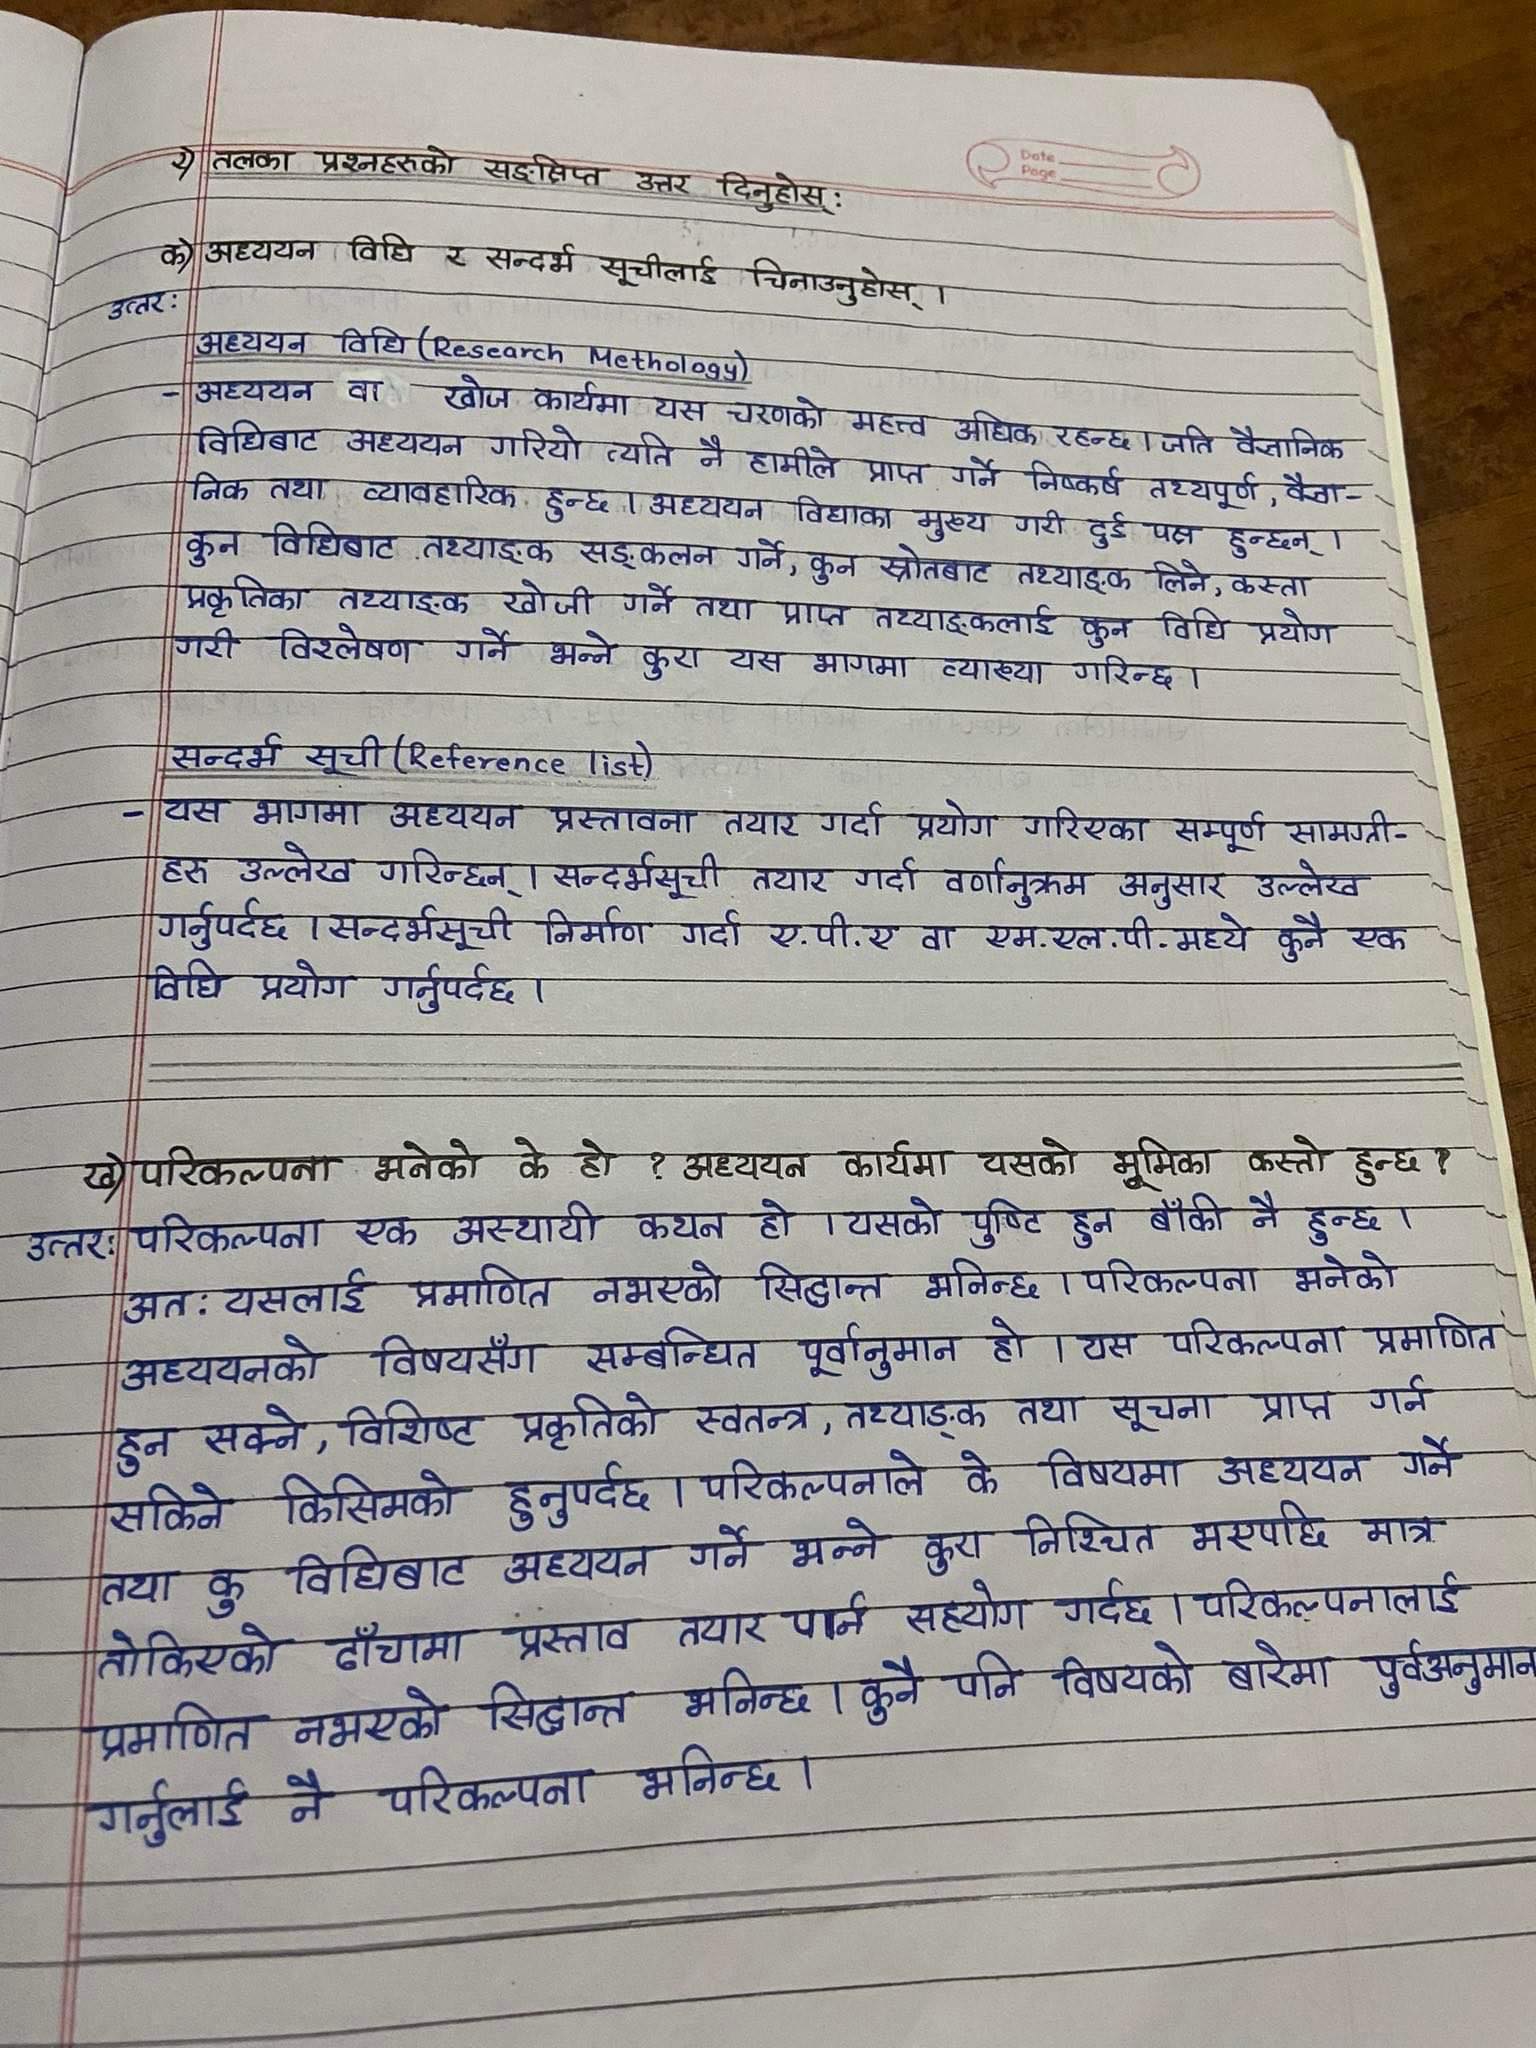 २) तलका प्रश्नहरुको सङ्क्षिप्त उत्तर दिनुहोस् :
Date
Page
क) अध्ययन विधि र सन्दर्भ सूचीलाई चिनाउनुहोस् ।
उत्तर:
अध्ययन विधि (Research Methology)
- अध्ययन वा खोज कार्यमा यस चरणको महत्त्व अधिक रहन्छ । जति वैज्ञानिक
विधिबाट अध्ययन गरियो त्यति नै हामीले प्राप्त गर्ने निष्कर्ष तथ्यपूर्ण, वैज्ञा-
निक तथा व्यावहारिक हुन्छ । अध्ययन विद्याका मुख्य गरी दुई पक्ष हुन्छन् ।
कुन विधिबाट तथ्याङ्क सङ्कलन गर्ने, कुन स्रोतबाट तथ्याङ्क लिने, कस्ता
प्रकृतिका तथ्याङ्क खोजी गर्ने तथा प्राप्त तथ्याङ्कलाई कुन विधि प्रयोग
गरी विश्लेषण गर्ने भन्ने कुरा यस भागमा व्याख्या गरिन्छ ।
सन्दर्भ सूची (Reference list)
- यस भागमा अध्ययन प्रस्तावना तयार गर्दा प्रयोग गरिएका सम्पूर्ण सामग्री-
हरु उल्लेख गरिन्छन् । सन्दर्भसूची तयार गर्दा वर्णानुक्रम अनुसार उल्लेख
गर्नुपर्दछ । सन्दर्भसूची निर्माण गर्दा ए.पी.ए वा एम.एल.पी. मध्ये कुनै एक
विधि प्रयोग गर्नुपर्दछ ।
ख) परिकल्पना भनेको के हो ? अध्ययन कार्यमा यसको भूमिका कस्तो हुन्छ ?
उत्तर: परिकल्पना एक अस्थायी कथन हो । यसको पुष्टि हुन बाँकी नै हुन्छ ।
अत: यसलाई प्रमाणित नभएको सिद्धान्त भनिन्छ । परिकल्पना भनेको
अध्ययनको विषयसँग सम्बन्धित पूर्वानुमान हो । यस परिकल्पना प्रमाणित
हुन सक्ने, विशिष्ट प्रकृतिको स्वतन्त्र, तथ्याङ्क तथा सूचना प्राप्त गर्न
सकिने किसिमको हुनुपर्दछ । परिकल्पनाले के विषयमा अध्ययन गर्ने
तथा कु विधिबाट अध्ययन गर्ने भन्ने कुरा निश्चित भएपछि मात्र
तोकिएको ढाँचामा प्रस्ताव तयार पार्न सहयोग गर्दछ । परिकल्पनालाई
प्रमाणित नभएको सिद्धान्त भनिन्छ । कुनै पनि विषयको बारेमा पुर्वअनुमान
गर्नुलाई नै परिकल्पना भनिन्छ ।